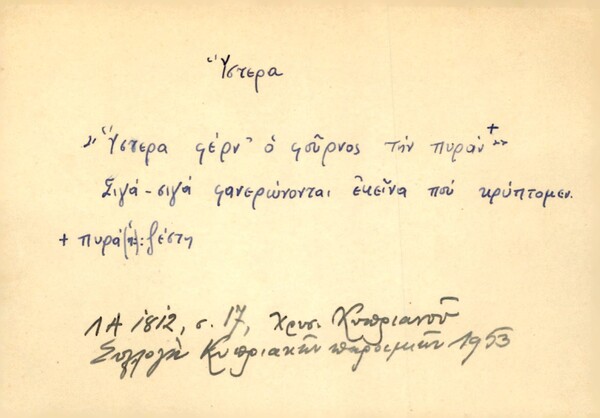 Ὕστερα
"Ὕστερα φέρν' ὁ φοῦρνος τὴν πυράν+"
Σιγά-σιγά φανερώνονται ἐκεῖνα πού κρύπτομεν.
+ πυρά (ἡ): ζέστη
ΛΑ 1812, σ. 17, Χρυσ. Κυπριανοῦ
Συλλογὴ Κυπριακῶν παροιμιῶν 1953